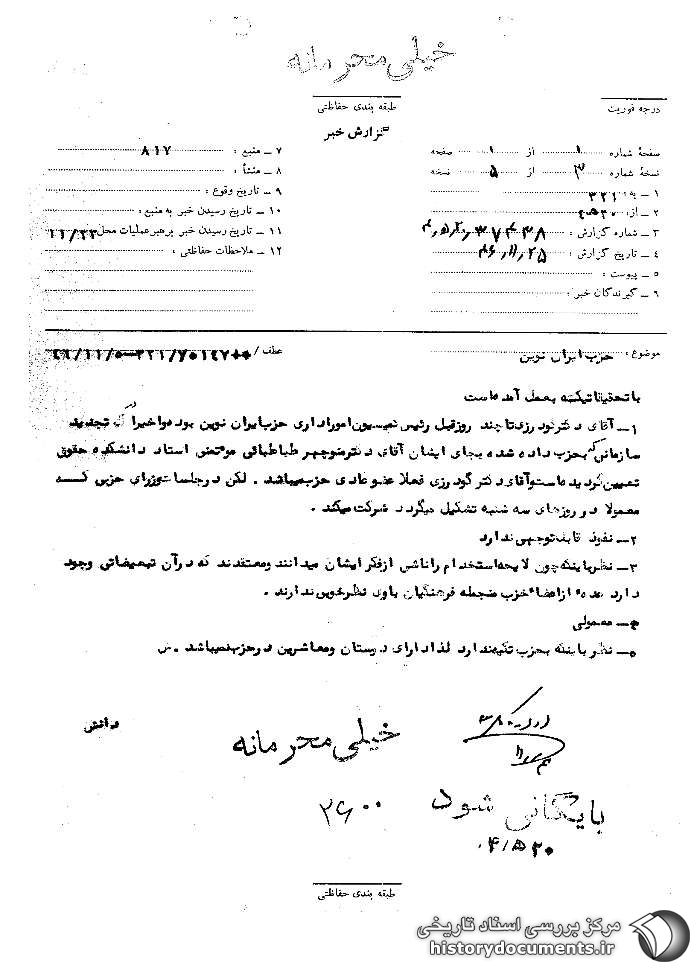 خیلی محرمانه
طبقه بندی حفاظتی
درجه فوریت
گزارش خبر
صفحهٔ شماره ۱ از ۱ صفحه
نسخهٔ شماره ۳ از ۵ نسخه
۱ ـ به: ۳۲۱
۲ ـ از:
۳ ـ شماره گزارش:
۴ ـ تاریخ گزارش: ۴۶٫۱۱٫۲۵
۵ ـ پیوست:
۶ ـ گیرندگان خبر:
۷ ـ منبع: ۸۱۷
۸ ـ منشأ:
۹ ـ تاریخ وقوع:
۱۰ ـ تاریخ رسیدن خبر به منبع:
۱۱ ـ تاریخ رسیدن خبر برهبر عملیات محل ۱۱/۲۳
۱۲ ـ ملاحظات حفاظتی:
موضوع: حزب ایران نوین
عطف/
باتحقیقاتیکه بعمل آمده است
۱ـ آقای دکترگودرزی تا چند روزقبل رئیس کمیسیون اموراداری حزب ایران نوین بود واخیرا که تجدید
سازمانی بحزب داده شده بجای ایشان آقای دکترمنوچهر طباطبائی موتمنی استاد دانشکده حقوق
تعیین گردیده است وآقای دکتر گودرزی فعلا عضوعادی حزب میباشد . لکن درجلسات وزرای حزبی کسه
معمولا در روزهای سه شنبه تشکیل میگردد شرکت میکند .
۲ـ نفوذ قابل توجهی ندارد
۳ـ نظرباینکه چون لایحه استخدام راناشی ازفکر ایشان میدانند ومعتقدند که درآن تبعیضاتی وجود
دارد عده ای ازاعضاء حزب منجمله فرهنگیان باوی نظرخوبی ندارند .
ع ـ معمولی
۵ـ نظر باینکه بحزب تکیه ندارد لذا دارای دوستان ومعاشرین درحزب نمیباشد .
دانش
خیلی محرمانه
۲۶۰۰
بایگانی شود
۵۲۰/۴
طبقه بندی حفاظتی
مرکز بررسی اسناد تاریخی
historydocuments.ir